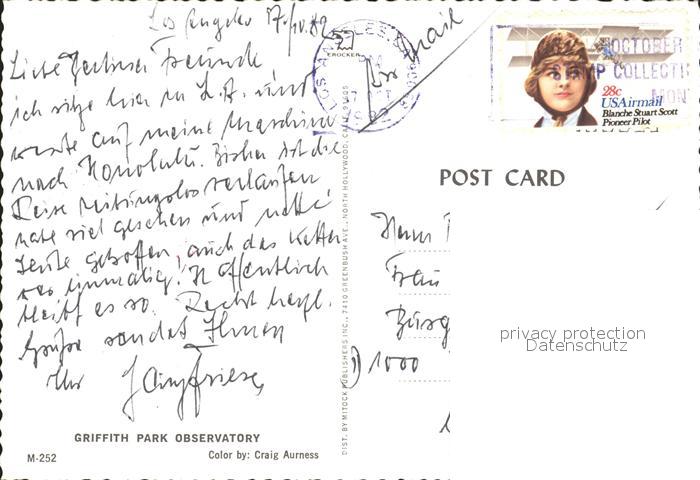 Los Angeles 17/10.82
Liebe Berliner Freunde
ich sitze hier in L.A. und
warte auf meine Maschine
nach Honolulu. Bisher ist die
Reise reibungslos verlaufen
habe viel gesehen und nette
Leute getroffen, auch das Wetter
war einmalig! Hoffentlich
bleibt es so. Recht herzl.
Grüße sendet Ihnen
Ihr
GRIFFITH PARK OBSERVATORY
M-252
Color by: Craig Aurness
CROCKER
DIST. BY MITOCK PUBLISHERS INC., 7410 GREENBUSH AVE., NORTH HOLLYWOOD, CALIF. 91605
LOS ANGELES
PM
17 OCT
Air Mail
OCTOBER
STAMP COLLECTI
MON
28c
USAirmail
Blanche Stuart Scott
Pioneer Pilot
POST CARD
Herrn
Frau
1000
privacy protection
Datenschutz